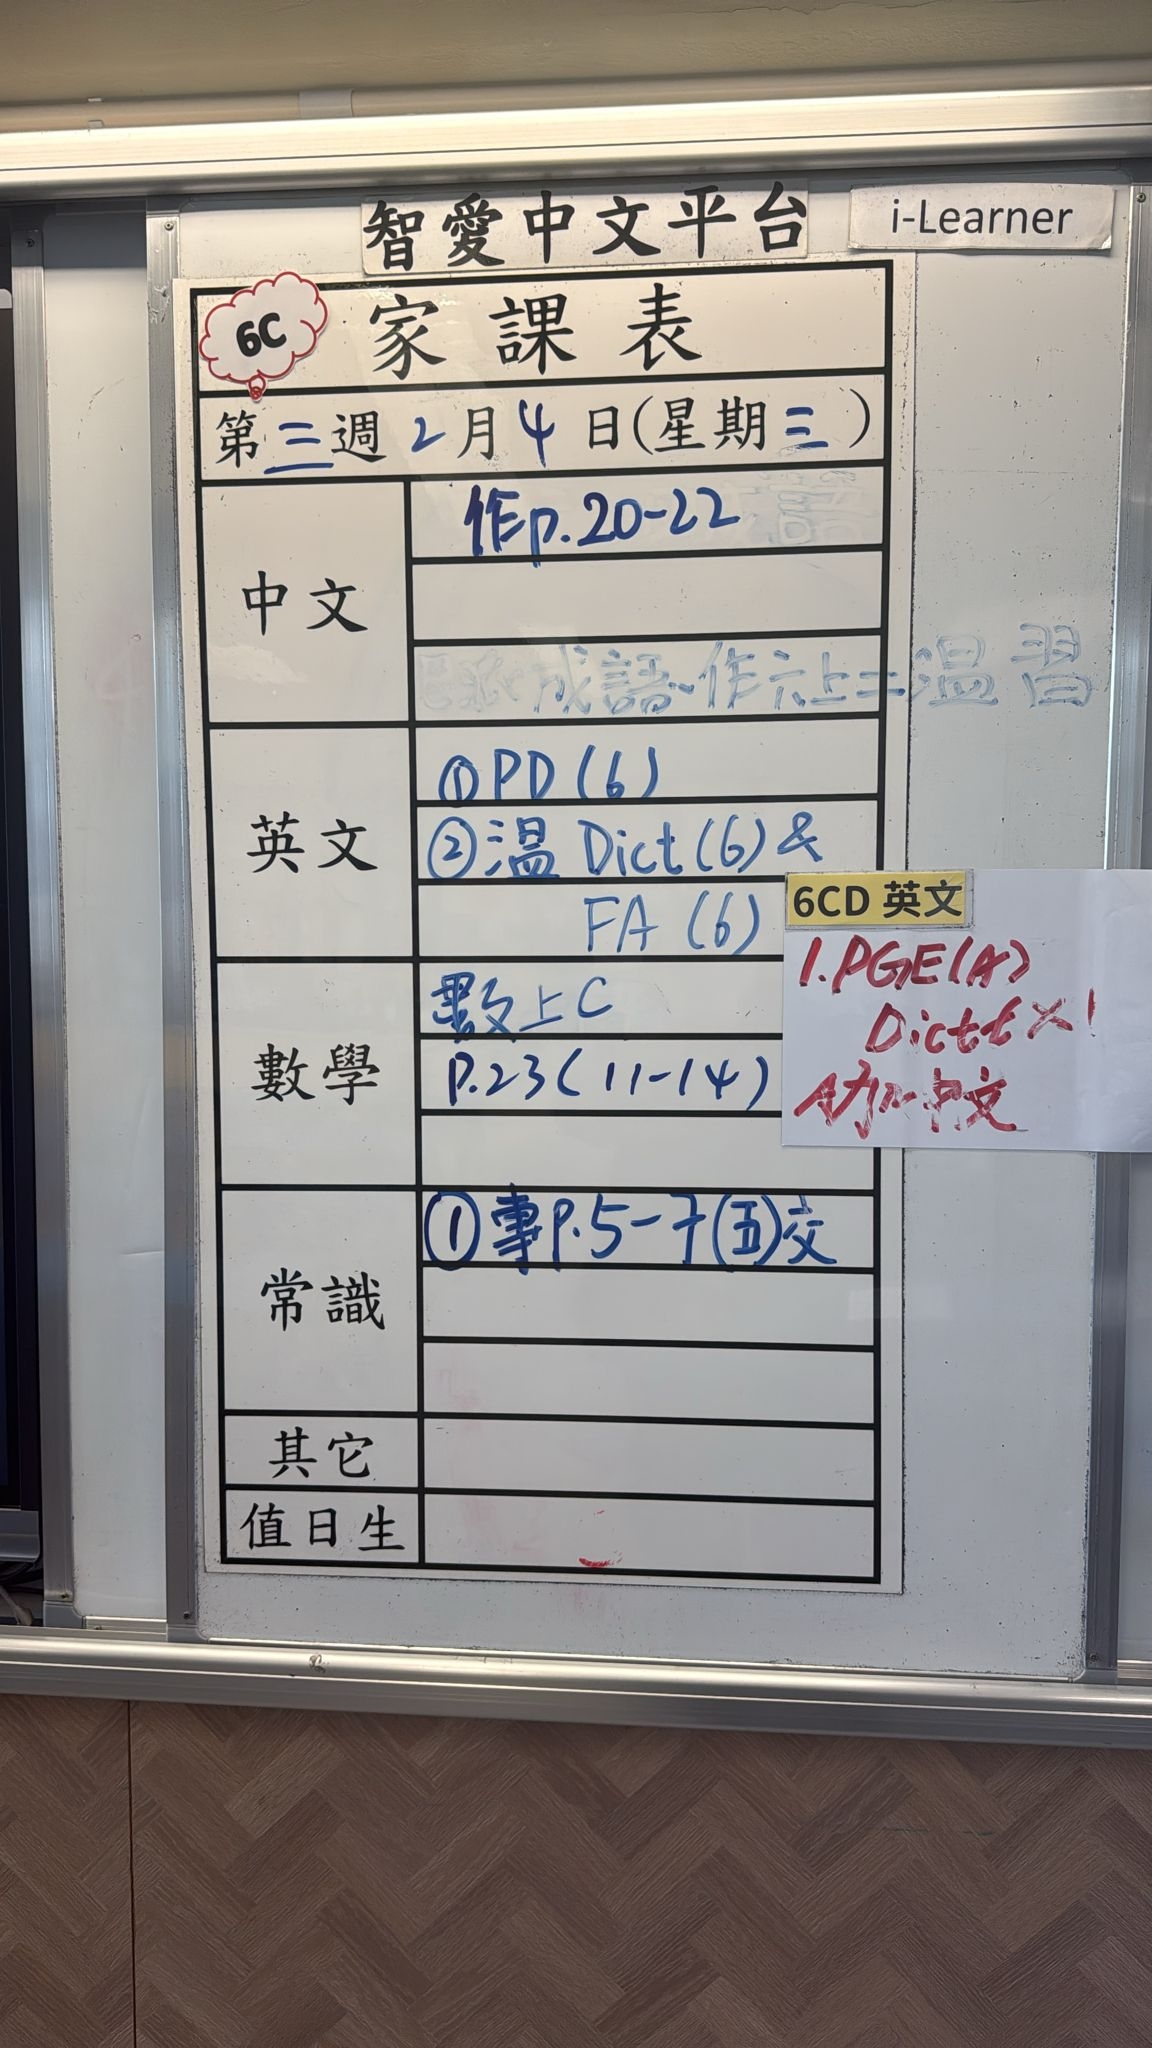 智愛中文平台
i-Learner
6C
家課表
第三週2月4日(星期三)
中文
作p.20-22
成語 作六上二溫習
英文
①PD(6)
②溫 Dict(6)&
FA (6)
6CD 英文
1.PGE(A)
Dict
中文
數學
數上C
P.23(11-14)
常識
①專P.5-7(五)交
其它
值日生